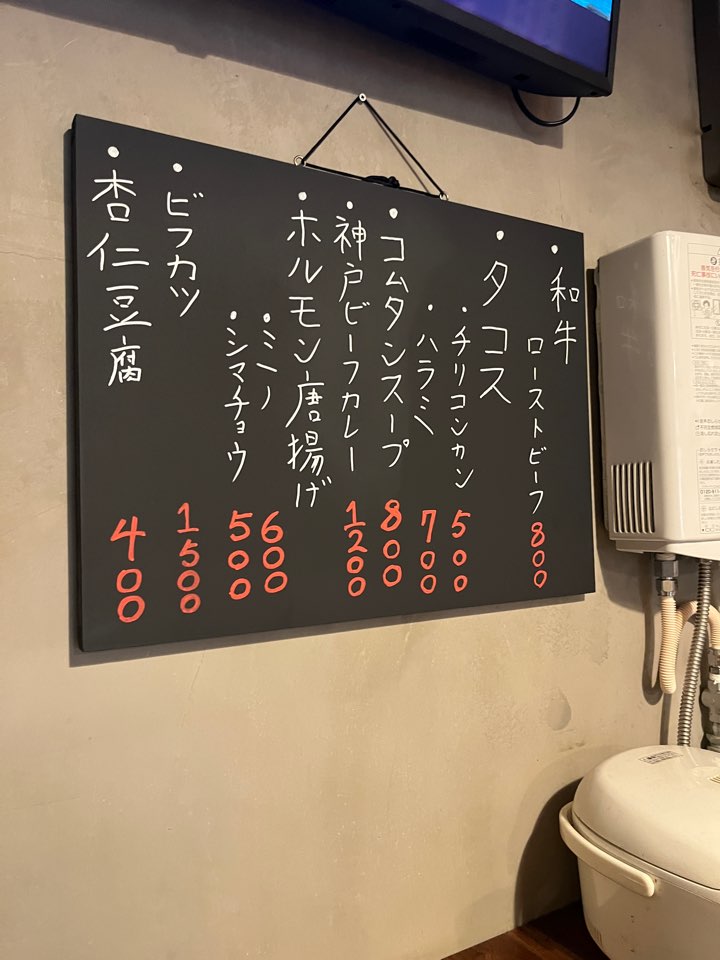 ・和牛
ローストビーフ 800
・タコス
・チリコンカン 500
・ハラミ 700
・コムタンスープ 800
・神戸ビーフカレー 1200
・ホルモン唐揚げ
・ミノ 600
・シマチョウ 500
・ビフカツ 1500
・杏仁豆腐 400